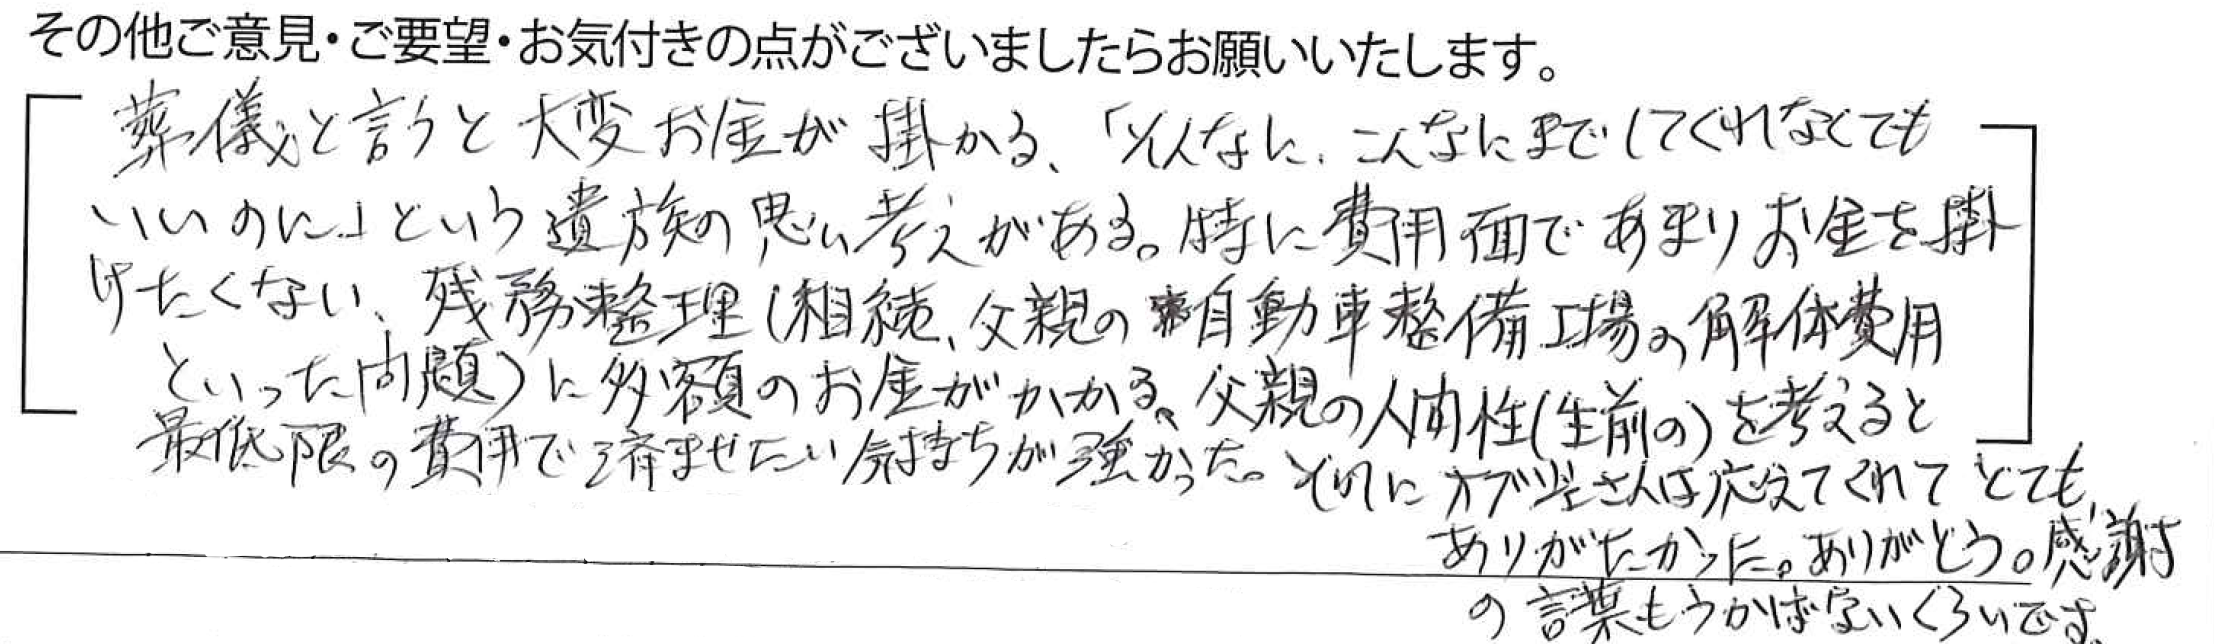 その他ご意見・ご要望・お気付きの点がございましたらお願いいたします。
葬儀と言うと大変お金が掛かる、「そんなに、こんなにまでしてくれなくても
いいのに」という遺族の思い考えがある。特に費用面であまりお金を掛
けたくない、残務整理(相続、父親の自動車整備工場の解体費用
といった問題)に多額のお金がかかる、父親の人間性(生前の)を考えると
最低限の費用で済ませたい気持ちが強かった。それにオブジェさんは応えてくれてとても
ありがたかった。ありがとう。感謝
の言葉もうかばないくらいです。